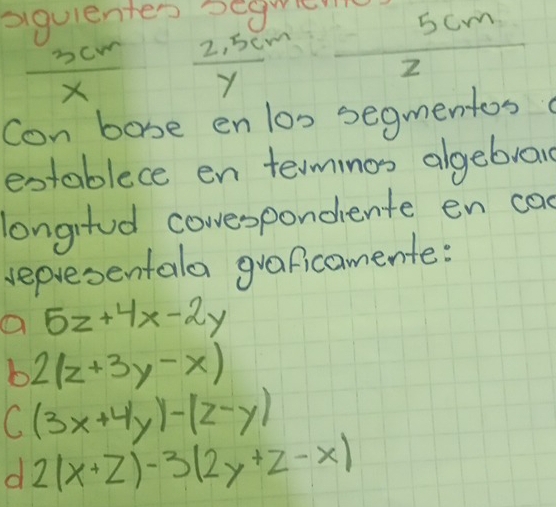 siguientes
3cm 2,5cm 5cm
x y z
Con base en los segmentos
establece en terminos
longitud correspondiente en
representala graficamente:
a 5z+4x-2y
b 2(z+3y-x)
C (3x+4y)-(z-y)
d 2(x+z)-3(2y+z-x)